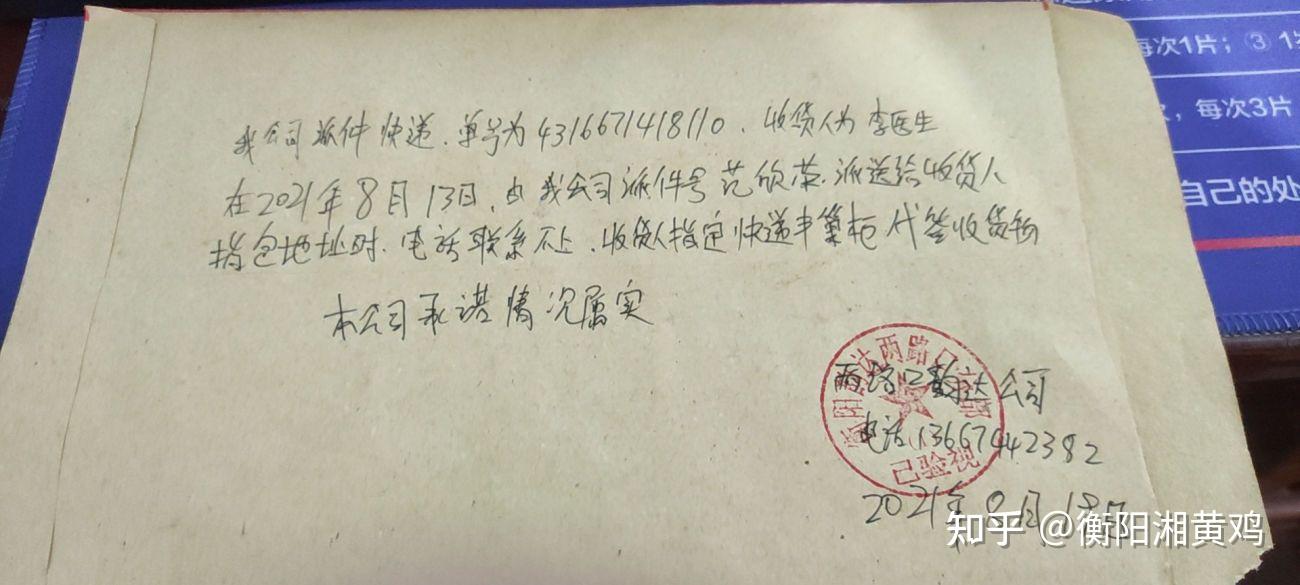 每次1片；③ 1
，每次3片
自己的处
我公司派件快递．单号为4316671418110．收货人为李医生
在2021年8月13日，由我公司派件号范欣荣．派送给收货人
指包地址时．电话联系不上．收货人指定快递丰巢柜代签收货物
本公司承诺情况属实
衡阳韵达两路口
两路口韵达公司
电话13667442382
已验视
2021年8月18日
知乎 @衡阳湘黄鸡